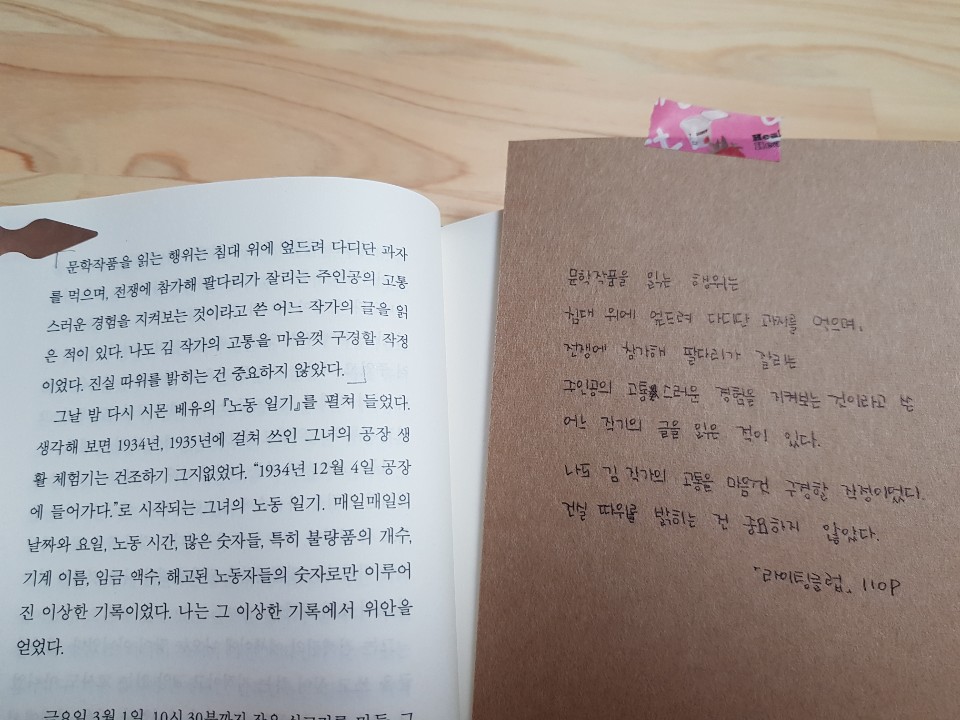 문학작품을 읽는 행위는 침대 위에 엎드려 다디단 과자
를 먹으며, 전쟁에 참가해 팔다리가 잘리는 주인공의 고통
스러운 경험을 지켜보는 것이라고 쓴 어느 작가의 글을 읽
은 적이 있다. 나도 김 작가의 고통을 마음껏 구경할 작정
이었다. 진실 따위를 밝히는 건 중요하지 않았다.
그날 밤 다시 시몬 베유의 『노동 일기』를 펼쳐 들었다.
생각해 보면 1934년, 1935년에 걸쳐 쓰인 그녀의 공장 생
활 체험기는 건조하기 그지없었다. “1934년 12월 4일 공장
에 들어가다.”로 시작되는 그녀의 노동 일기. 매일매일의
날짜와 요일, 노동 시간, 많은 숫자들, 특히 불량품의 개수,
기계 이름, 임금 액수, 해고된 노동자들의 숫자로만 이루어
진 이상한 기록이었다. 나는 그 이상한 기록에서 위안을
얻었다.
금요일 3월 1일, 10시 30분까지
문학작품을 읽는 행위는
침대 위에 엎드려 다디단 과자를 먹으며,
전쟁에 참가해 팔다리가 잘리는
주인공의 고통스러운 경험을 지켜보는 것이라고 쓴
어느 작가의 글을 읽은 적이 있다.
나도 김 작가의 고통을 마음껏 구경할 작정이었다.
진실 따위를 밝히는 건 중요하지 않았다.
「라이팅클럽」 110p